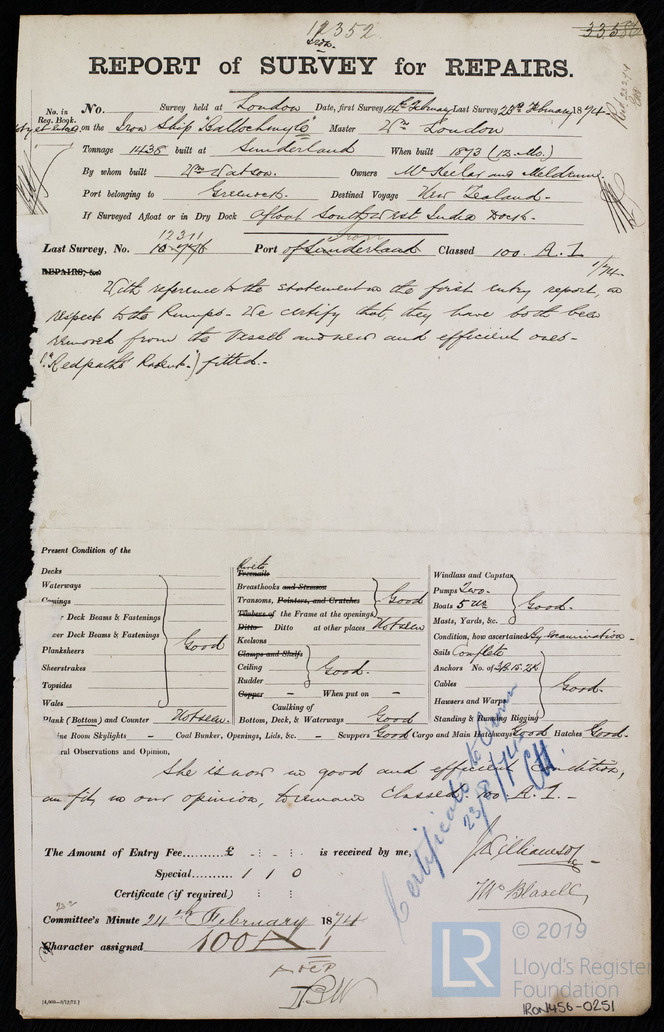 12352
Iron
33586
REPORT of SURVEY for REPAIRS.
No. in Reg. Book. No. Survey held at London Date, first Survey 14th February Last Survey 23rd February 1874
on the Iron Ship "Ballochmyle" Master Wm London
Tonnage 1438 built at Sunderland When built 1873 (12 Mo.)
By whom built Wm Watson. Owners McKellar and
Port belonging to Greenock. Destined Voyage New Zealand.-
If Surveyed Afloat or in Dry Dock Afloat South West India Dock.-
12311
Last Survey, No. Port of Sunderland Classed 100. A.1
1/74-
REPAIRS, &c.
With reference to the statement in the first entry report, in
respect to the Pumps - We certify that, they have both been
removed from the Vessel and new and efficient ones-
("Redpath's Patent.") fitted.-
Present Condition of the
Decks
Waterways
Comings
Deck Beams & Fastenings
Deck Beams & Fastenings
Plankshears
Sheerstrakes
Topsides
Wales
Good
Plank (Bottom) and Counter Not seen.
Rivets
Treenails
Breasthooks and Stemson
Transoms, Pointers, and Crutches
Timbers of the Frame at the openings
Good
Ditto Ditto at other places Not seen
Keelsons
Clamps and Shelfs
Ceiling
Rudder
Good.
Copper - When put on -
Caulking of
Bottom, Deck, & Waterways Good
Windlass and Capstan
Pumps Two.-
Boats 5
Masts, Yards, &c.
Good.
Condition, how ascertained By examination-
Sails Complete
Anchors No. of
Cables
Hawsers and Warps
Standing & Running Rigging
Good.
Room Skylights - Coal Bunker, Openings, Lids, &c. - Scuppers Good Cargo and Main Hatchways Good Hatches Good.-
Observations and Opinion,
She is now in good and efficient condition,
an fit, in our opinion, to remain Classed. 100. A.1.-
Certificate to Owner
23/2/74
The Amount of Entry Fee.........£ - : - : is received by me,
Special......... 1 1 0
Certificate (if required) : :
J Williamson
Committee's Minute 24th February 1874
Character assigned 100 A 1
[4,000-9/12/72.]
LR
© 2019
Lloyd's Register
Foundation
IRON456-0251